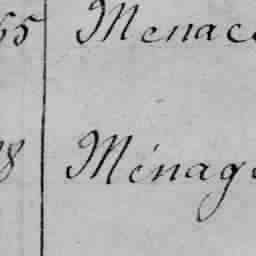 65 Menac
8 Ménag